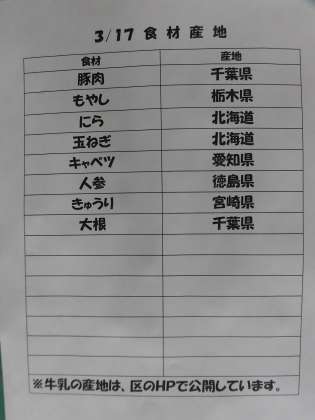 3/17 食材産地
食材 産地
豚肉 千葉県
もやし 栃木県
にら 北海道
玉ねぎ 北海道
キャベツ 愛知県
人参 徳島県
きゅうり 宮崎県
大根 千葉県
※牛乳の産地は、区のHPで公開しています。